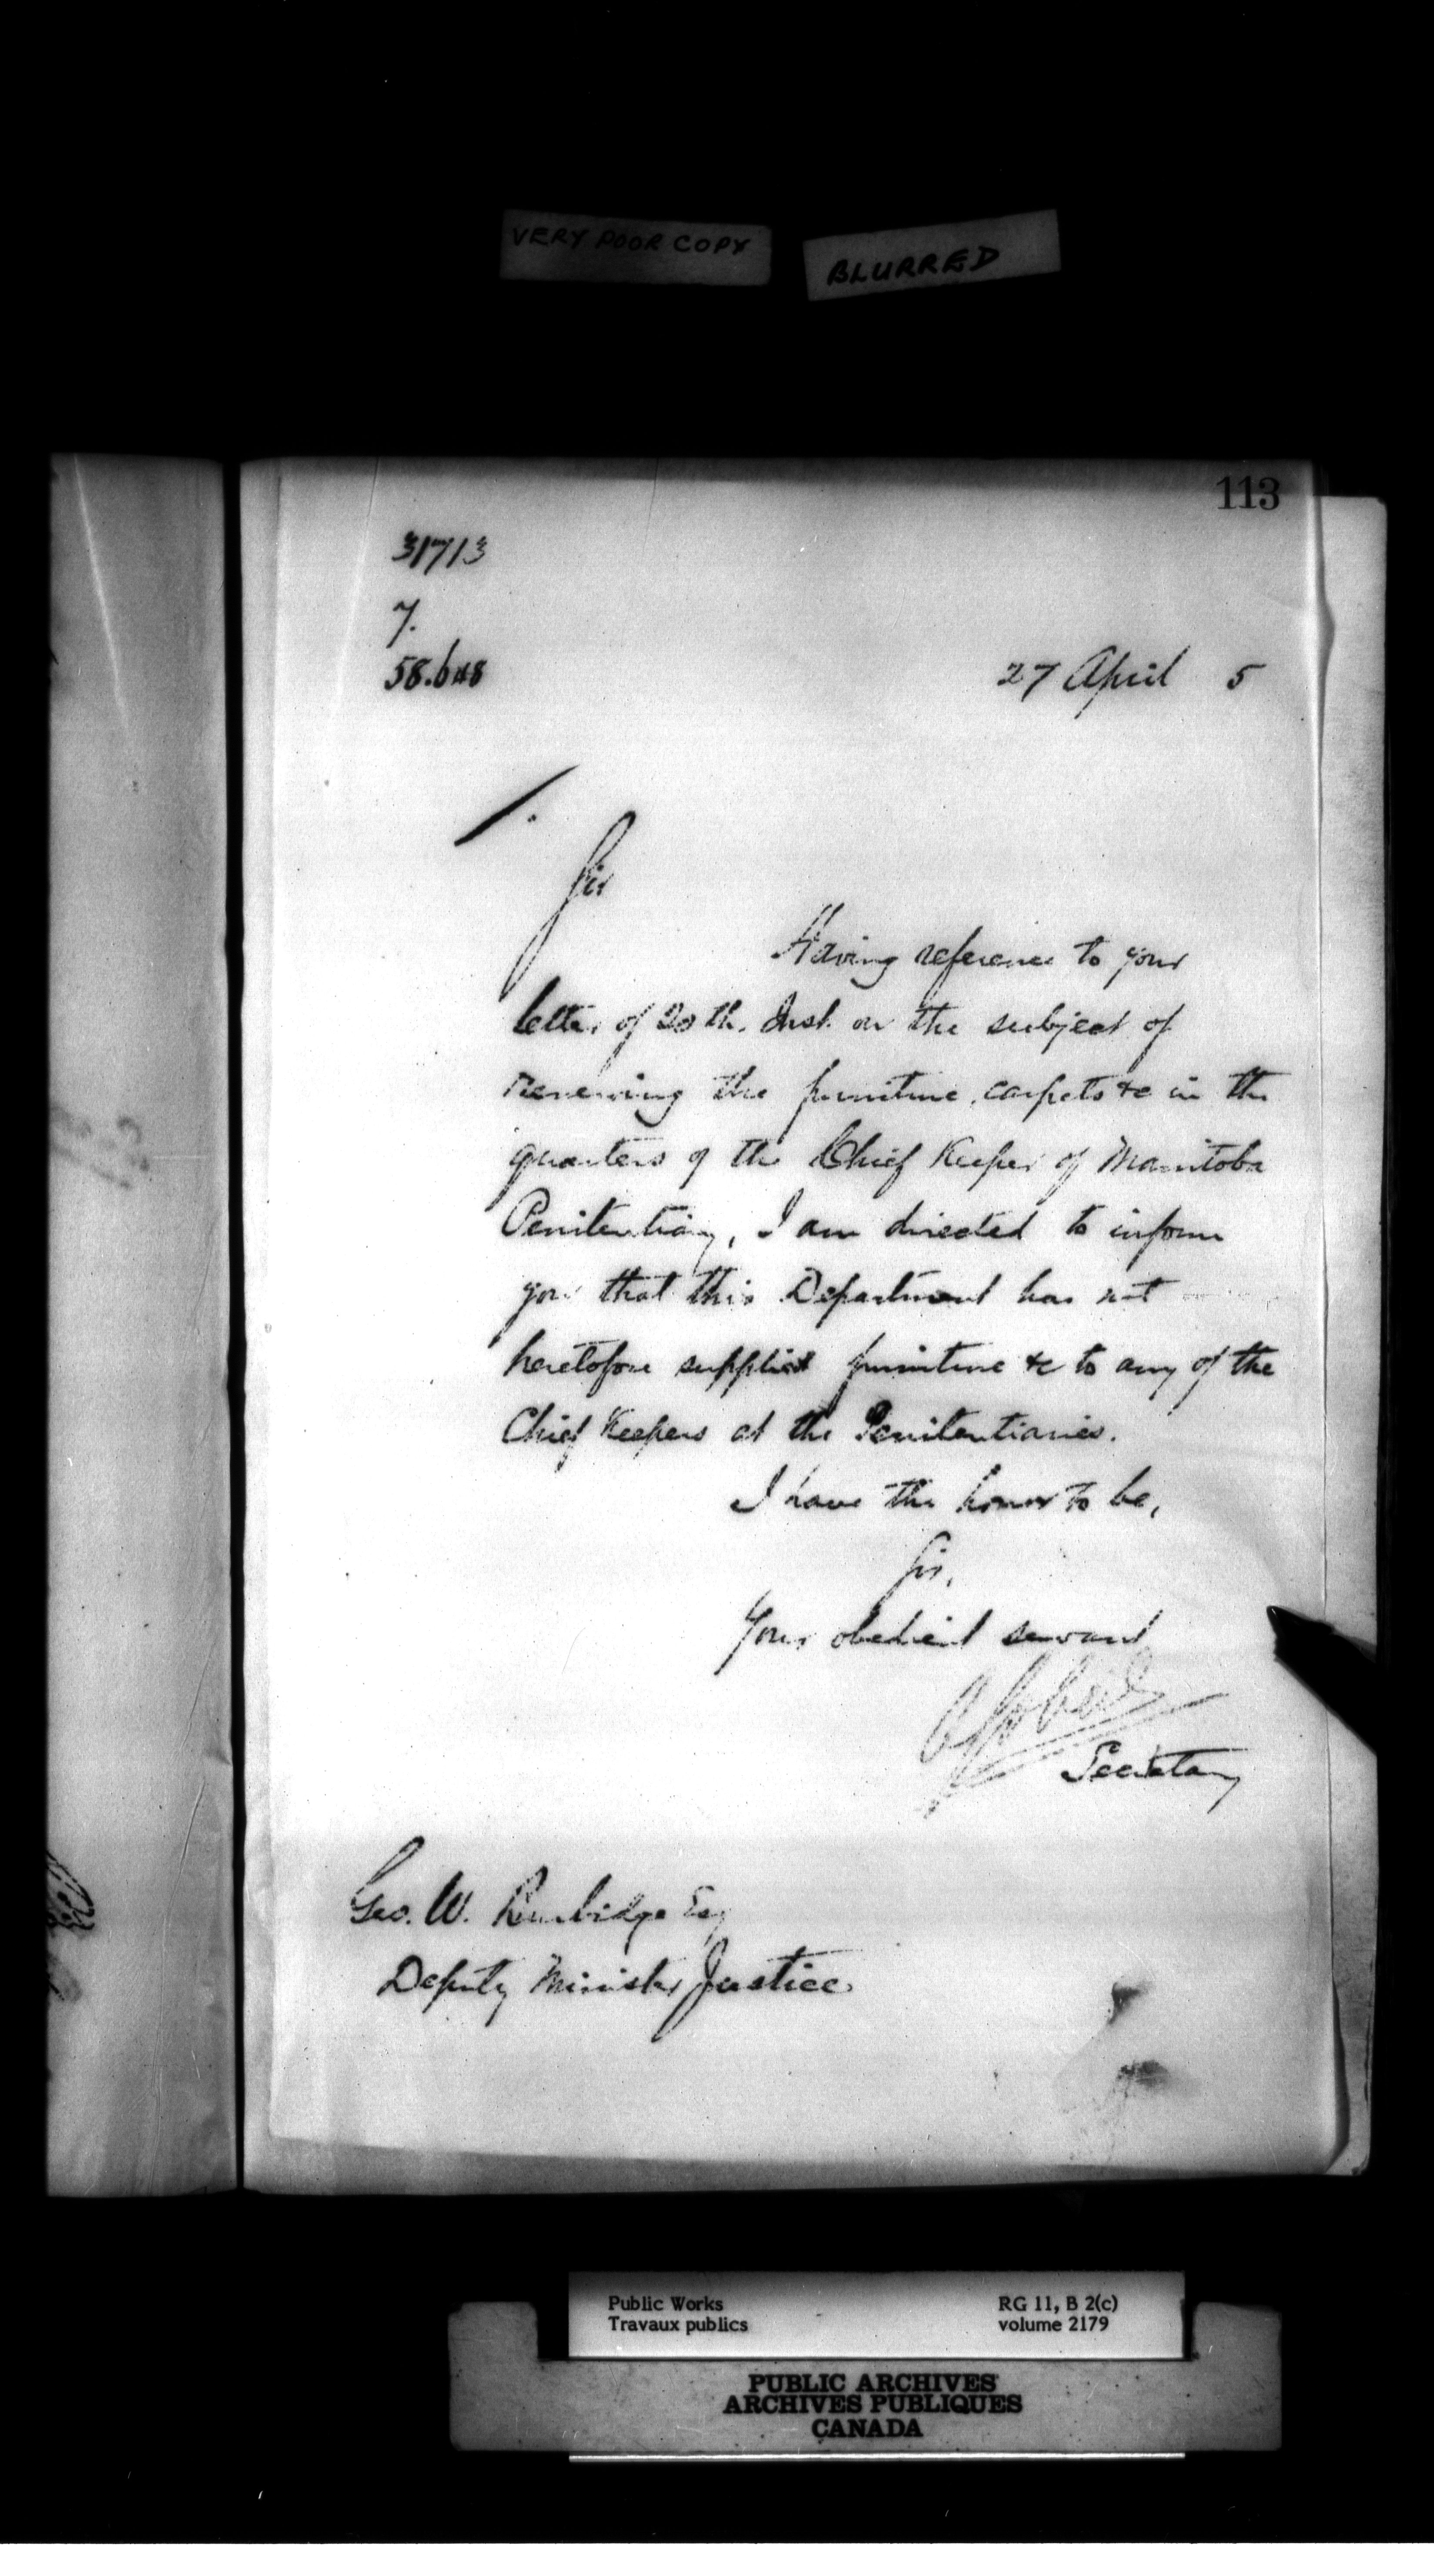 VERY POOR COPY
BLURRED
113
31713
7.
27 April 5
Sir
Having reference to your
letter of 20th. Inst. on the subject of
renewing the furniture, carpets &c in the
quarters of the Chief Keeper of Manitoba
Penitentiary, I am directed to inform
you that this Department has not
heretofore supplied furniture &c to any of the
Chief Keepers at the Penitentiaries.
I have the honor to be,
Sir,
Your obedient servant
Secretary
Geo. W. Burbidge Esq
Deputy Minister Justice
Public Works
Travaux publics
RG 11, B 2(c)
volume 2179
PUBLIC ARCHIVES
ARCHIVES PUBLIQUES
CANADA